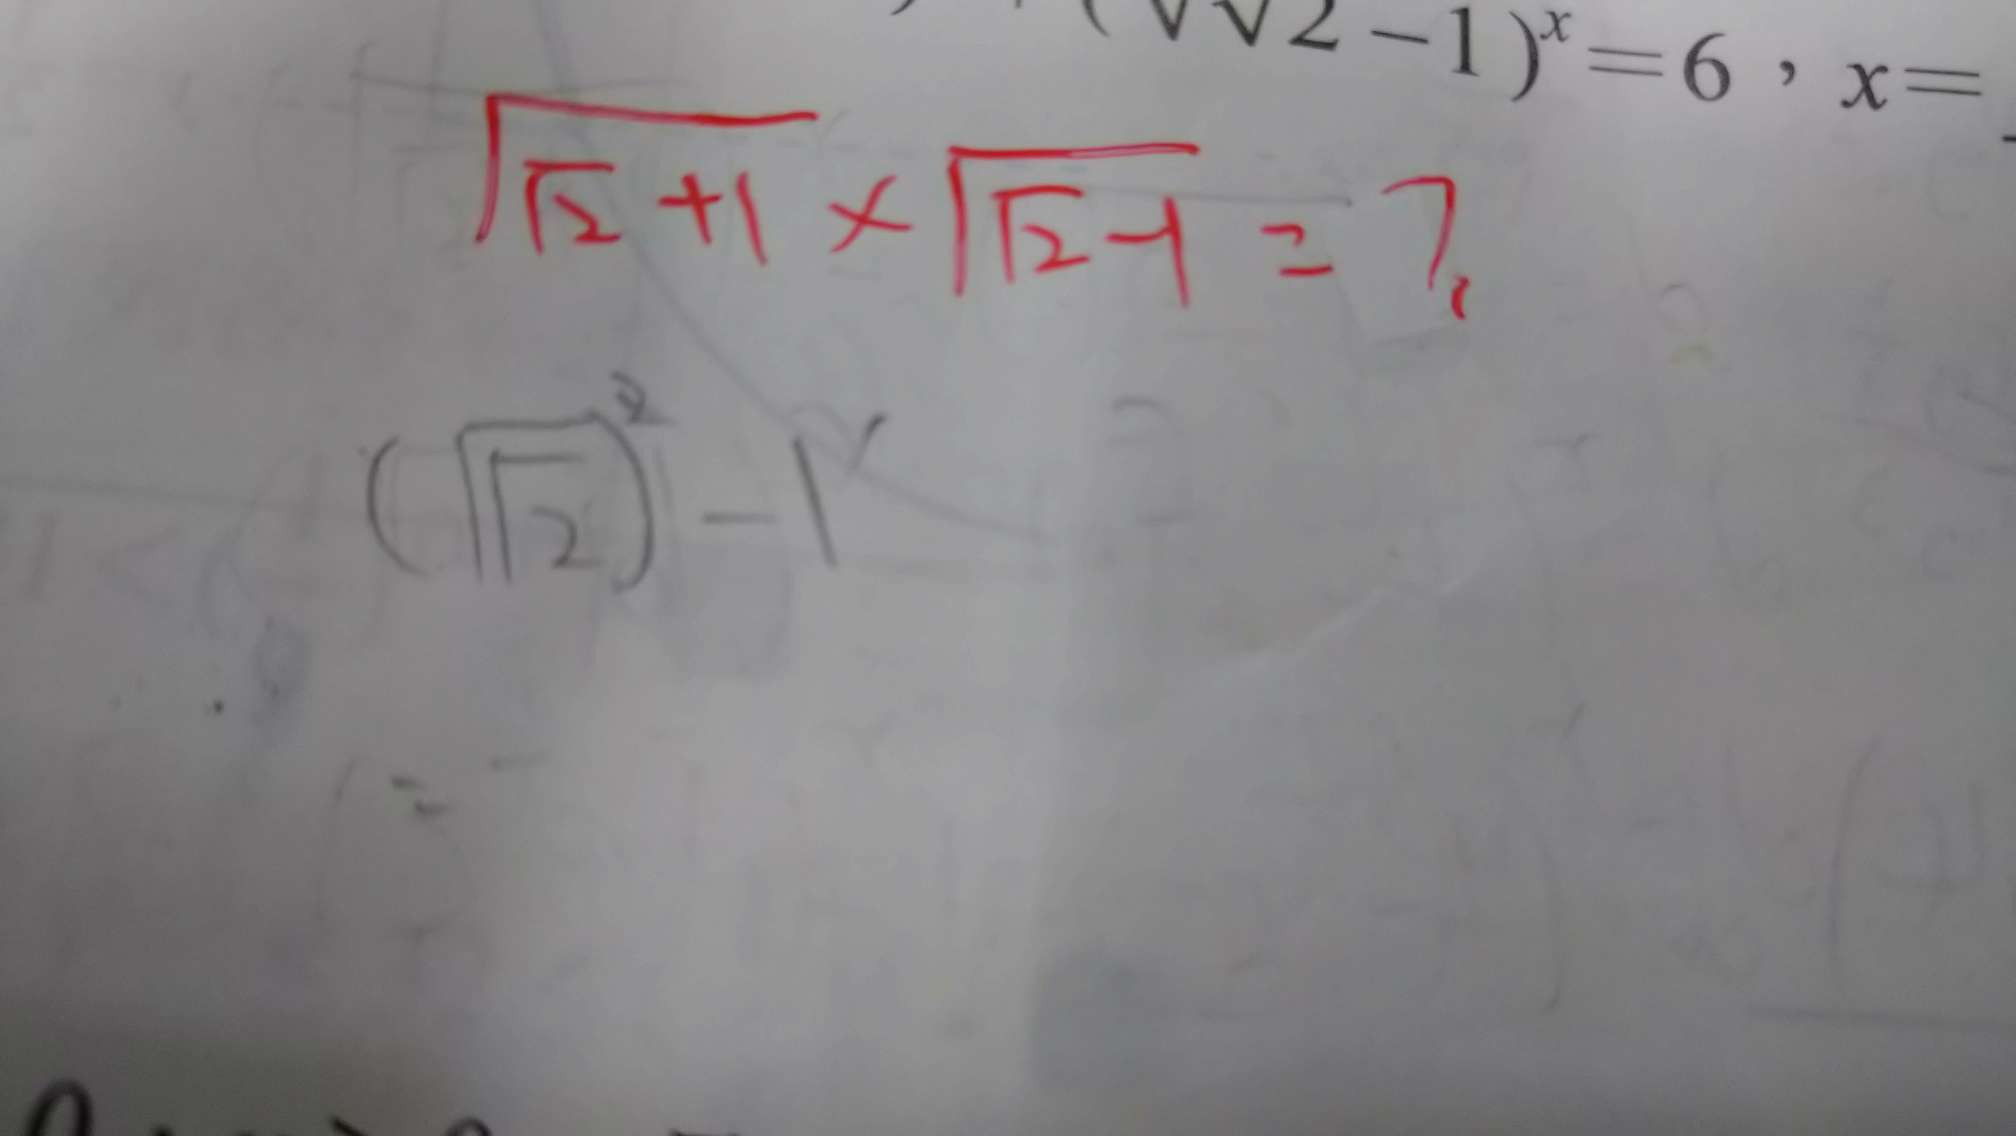 (√√2-1)ˣ=6，x=
√(√2+1) × √(√2-1) = ?
(√√2)² - 1
=